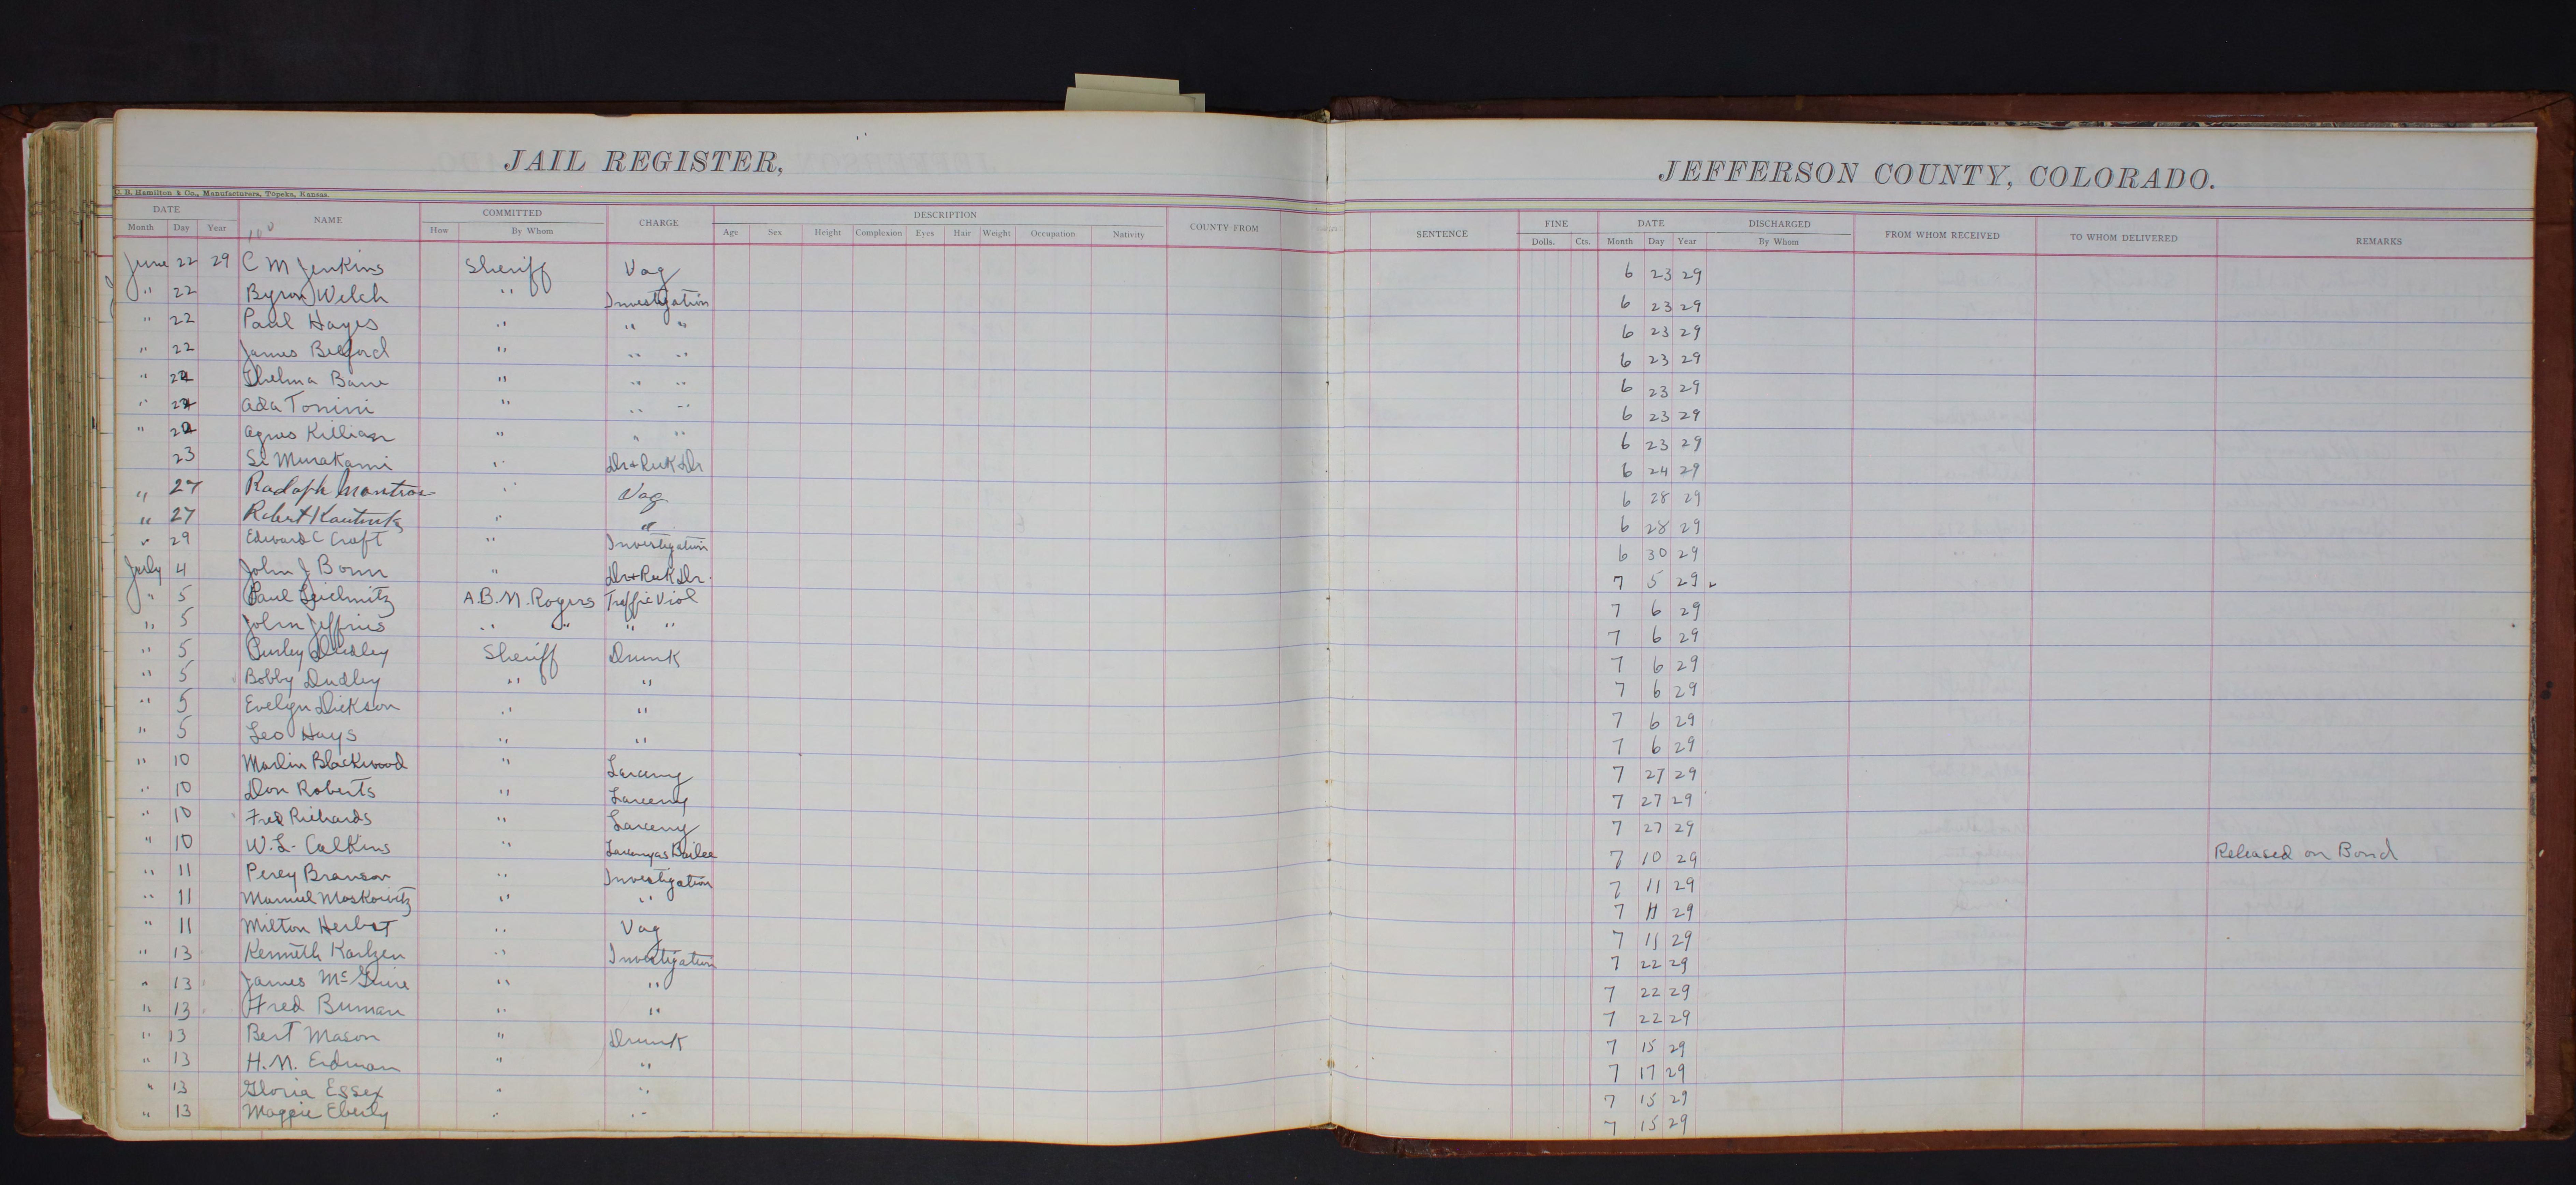 JAIL REGISTER, JEFFERSON COUNTY, COLORADO.
C. B. Hamilton & Co., Manufacturers, Topeka, Kansas.
DATE NAME COMMITTED CHARGE DESCRIPTION COUNTY FROM SENTENCE FINE DATE DISCHARGED FROM WHOM RECEIVED TO WHOM DELIVERED REMARKS
Month Day Year How By Whom Age Sex Height Complexion Eyes Hair Weight Occupation Nativity Dolls. Cts. Month Day Year By Whom
100
June 22 29 C M Jenkins Sheriff Vag 6 23 29
" 22 Byron Welch " Investigation 6 23 29
" 22 Paul Hayes " " " 6 23 29
" 22 James Belford " " " 6 23 29
" 22 Thelma Bane " " " 6 23 29
" 22 Ada Tonini " " " 6 23 29
" 22 Agnes Killian " " " 6 23 29
23 Si Murakami " Dr + Reck Dr 6 24 29
" 27 Radolph Montros " Vag 6 28 29
" 27 Robert " " 6 28 29
" 29 Edward C Craft " Investigation 6 30 29
July 4 John J Bonn " Dr + Reck Dr. 7 5 29
" 5 Paul Leichnitz A.B.M. Rogers Traffic Viol 7 6 29
" 5 John Jeffries " " " " 7 6 29
" 5 Purley Dudley Sheriff Drunk 7 6 29
" 5 Bobby Dudley " " 7 6 29
" 5 Evelyn Dickson " " 7 6 29
" 5 Leo Hays " " 7 6 29
" 10 Marlin Blackwood " Larceny 7 27 29
" 10 Don Roberts " Larceny 7 27 29
" 10 Fred Richards " Larceny 7 27 29
" 10 W. L. Calkins " Larceny as Bailee 7 10 29 Released on Bond
" 11 Percy Branson " Investigation 7 11 29
" 11 Manuel Moskowitz " " 7 11 29
" 11 Milton Herbst " Vag 7 11 29
" 13 Kenneth Karlzen " Investigation 7 22 29
" 13 James McGuire " " 7 22 29
" 13 Fred Buman " " 7 22 29
" 13 Bert Mason " Drunk 7 15 29
" 13 H. M. Erdman " " 7 17 29
" 13 Gloria Essex " " 7 15 29
" 13 Maggie Eberly " " 7 15 29